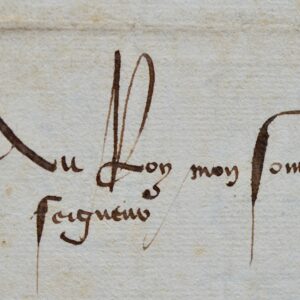 Au Roy mon sou
seigneur